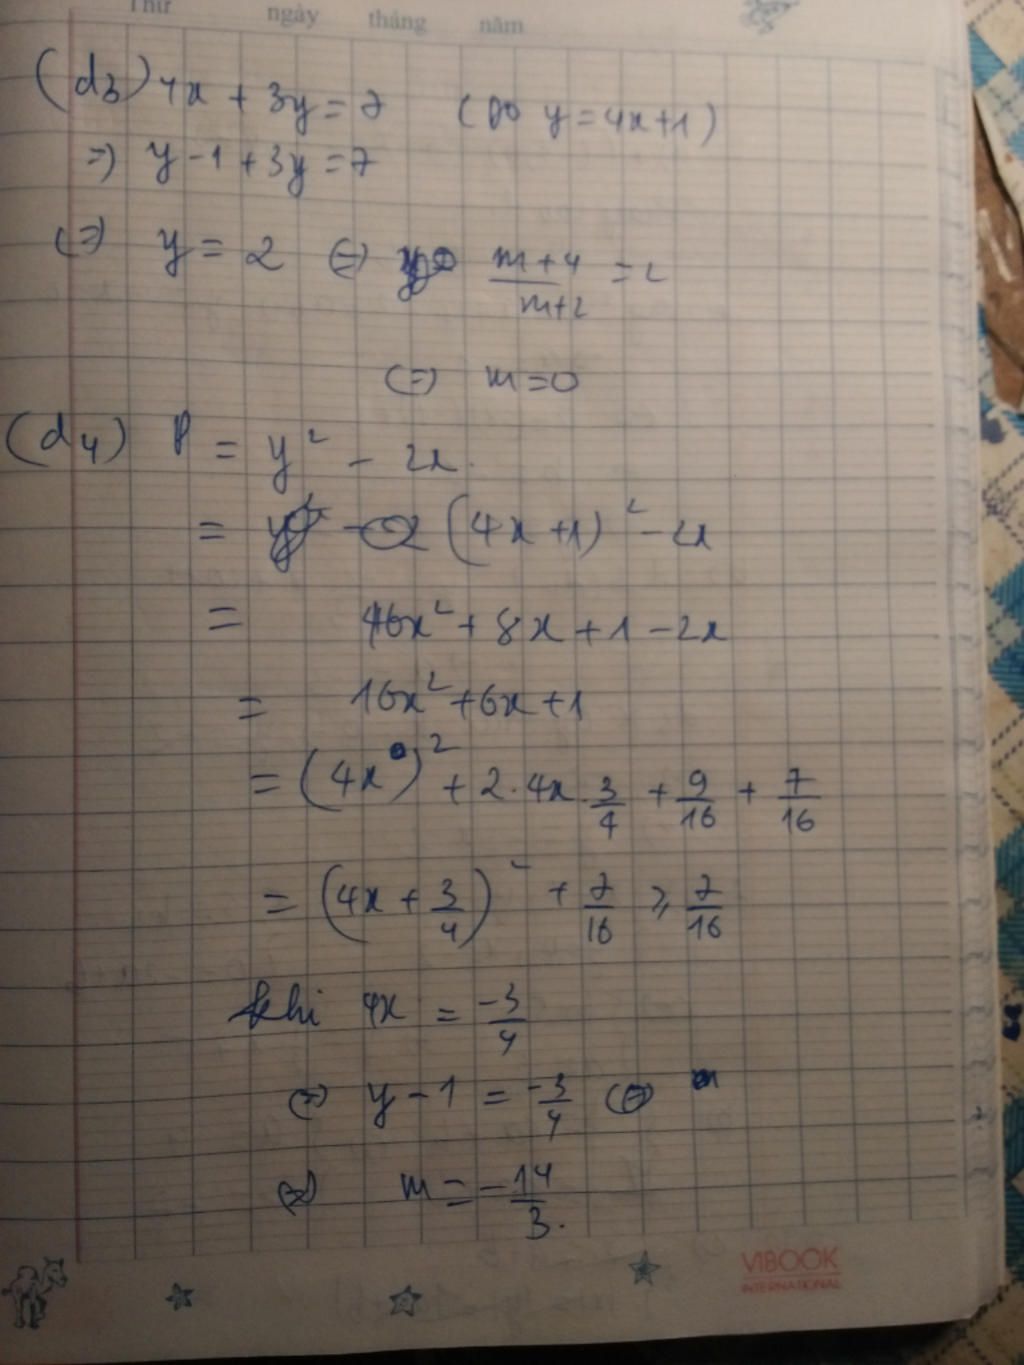 Thứ ngày tháng năm
(d3) 4x + 3y = 7 (Do y = 4x+1)
=> y - 1 + 3y = 7
<=> y = 2 <=> m+4/m+2 = 2
<=> m = 0
(d4) P = y² - 2x
= (4x+1)² - 2x
= 16x² + 8x + 1 - 2x
= 16x² + 6x + 1
= (4x)² + 2.4x.3/4 + 9/16 + 7/16
= (4x + 3/4)² + 7/16 ≥ 7/16
khi 4x = -3/4
<=> y - 1 = -3/4
<=> m = -14/3.
VIBOOK
INTERNATIONAL